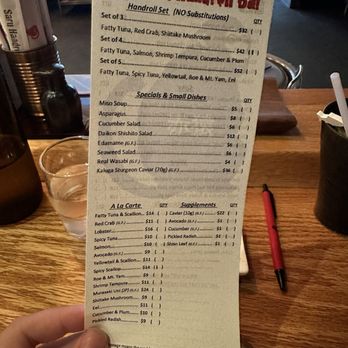 Handroll Bar
Handroll Set (NO Substitutions) QTY
Set of 3 $32 ( )
Fatty Tuna, Red Crab, Shiitake Mushroom
Set of 4 $42 ( )
Fatty Tuna, Salmon, Shrimp Tempura, Cucumber & Plum
Set of 5 $52 ( )
Fatty Tuna, Spicy Tuna, Yellowtail, Roe & Mt. Yam, Eel
Specials & Small Dishes QTY
Miso Soup $5 ( )
Asparagus $8 ( )
Cucumber Salad $6 ( )
Daikon Shishito Salad $12 ( )
Edamame (G.F.) $6 ( )
Seaweed Salad $6 ( )
Real Wasabi (G.F.) $4 ( )
Kaluga Sturgeon Caviar (20g) (G.F.) ( )
A La Carte QTY Supplements QTY
Fatty Tuna & Scallion $14 ( ) Caviar (10g) (G.F.) $22 ( )
Red Crab (G.F.) $11 ( ) Avocado (G.F.) $1 ( )
Lobster $16 ( ) Cucumber (G.F.) $1 ( )
Spicy Tuna $10 ( ) Pickled Radish $1 ( )
Salmon $10 ( ) Shiso Leaf (G.F.) $1 ( )
Avocado (G.F.) $9 ( )
Yellowtail & Scallion $11 ( )
Spicy Scallop $14 ( )
Roe & Mt. Yam $9 ( )
Shrimp Tempura $11 ( )
Murasaki Uni (G.F.) $24 ( )
Shiitake Mushroom $9 ( )
Eel $11 ( )
Cucumber & Plum $10 ( )
Pickled Radish $9 ( )